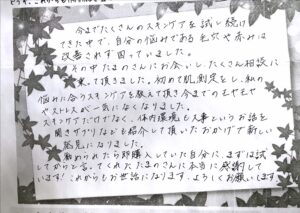 今までたくさんのスキンケアを試し続け
てきた中で、自分の悩みである毛穴や赤みは
改善されず困っていました。
その中たまのさんにお会いし、たくさん相談に
来て頂きました。初めて肌測定をし、私の
悩みに合うスキンケアを教えて頂き今までのモヤモヤ
やストレスが一気になくなりました。
スキンケアだけでなく、体内環境も大事というお話を
聞きサプリなども紹介して頂いたおかげで新しい
発見になりました。
勧められたら即購入していた自分に、まずは試し
てからと言ってくれたたまのさんに本当に感謝して
います！これからもお世話になります。よろしくお願いします